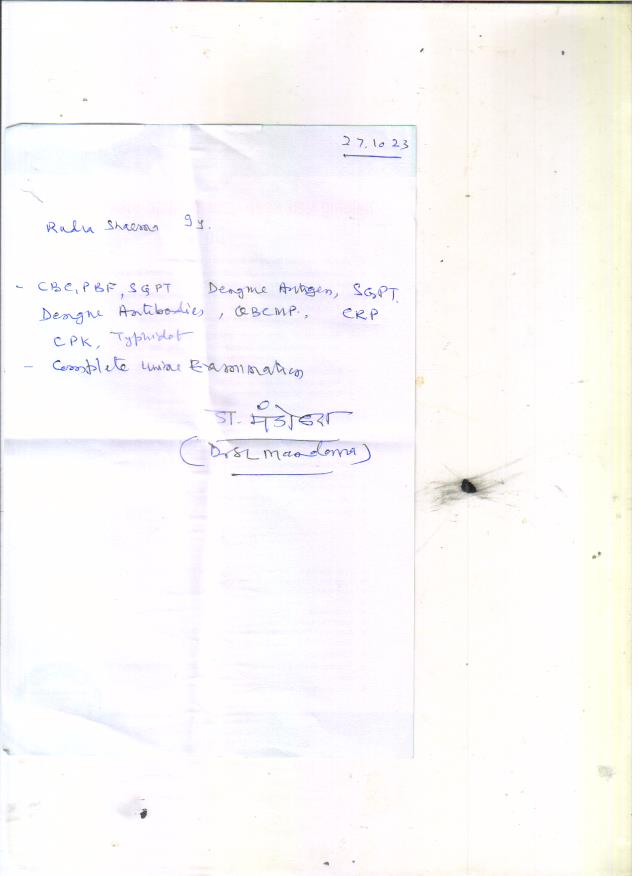 27.10.23
Radu Sharma 9y.
- CBC, PBF, SGPT Dengue Antigen, SGPT
Dengue Antibodies, QBCMP., CRP
CPK, Typhidot
- Complete Urine Examination
डा. मंडोवरा
(Dr SL Mandovra)